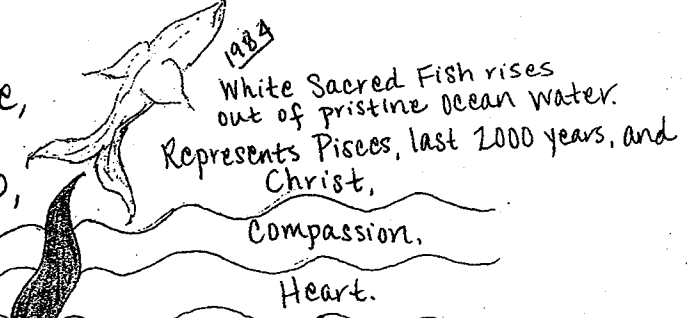 1984
White Sacred Fish rises
out of pristine ocean water.
Represents Pisces, last 2000 years, and
Christ,
Compassion,
Heart.